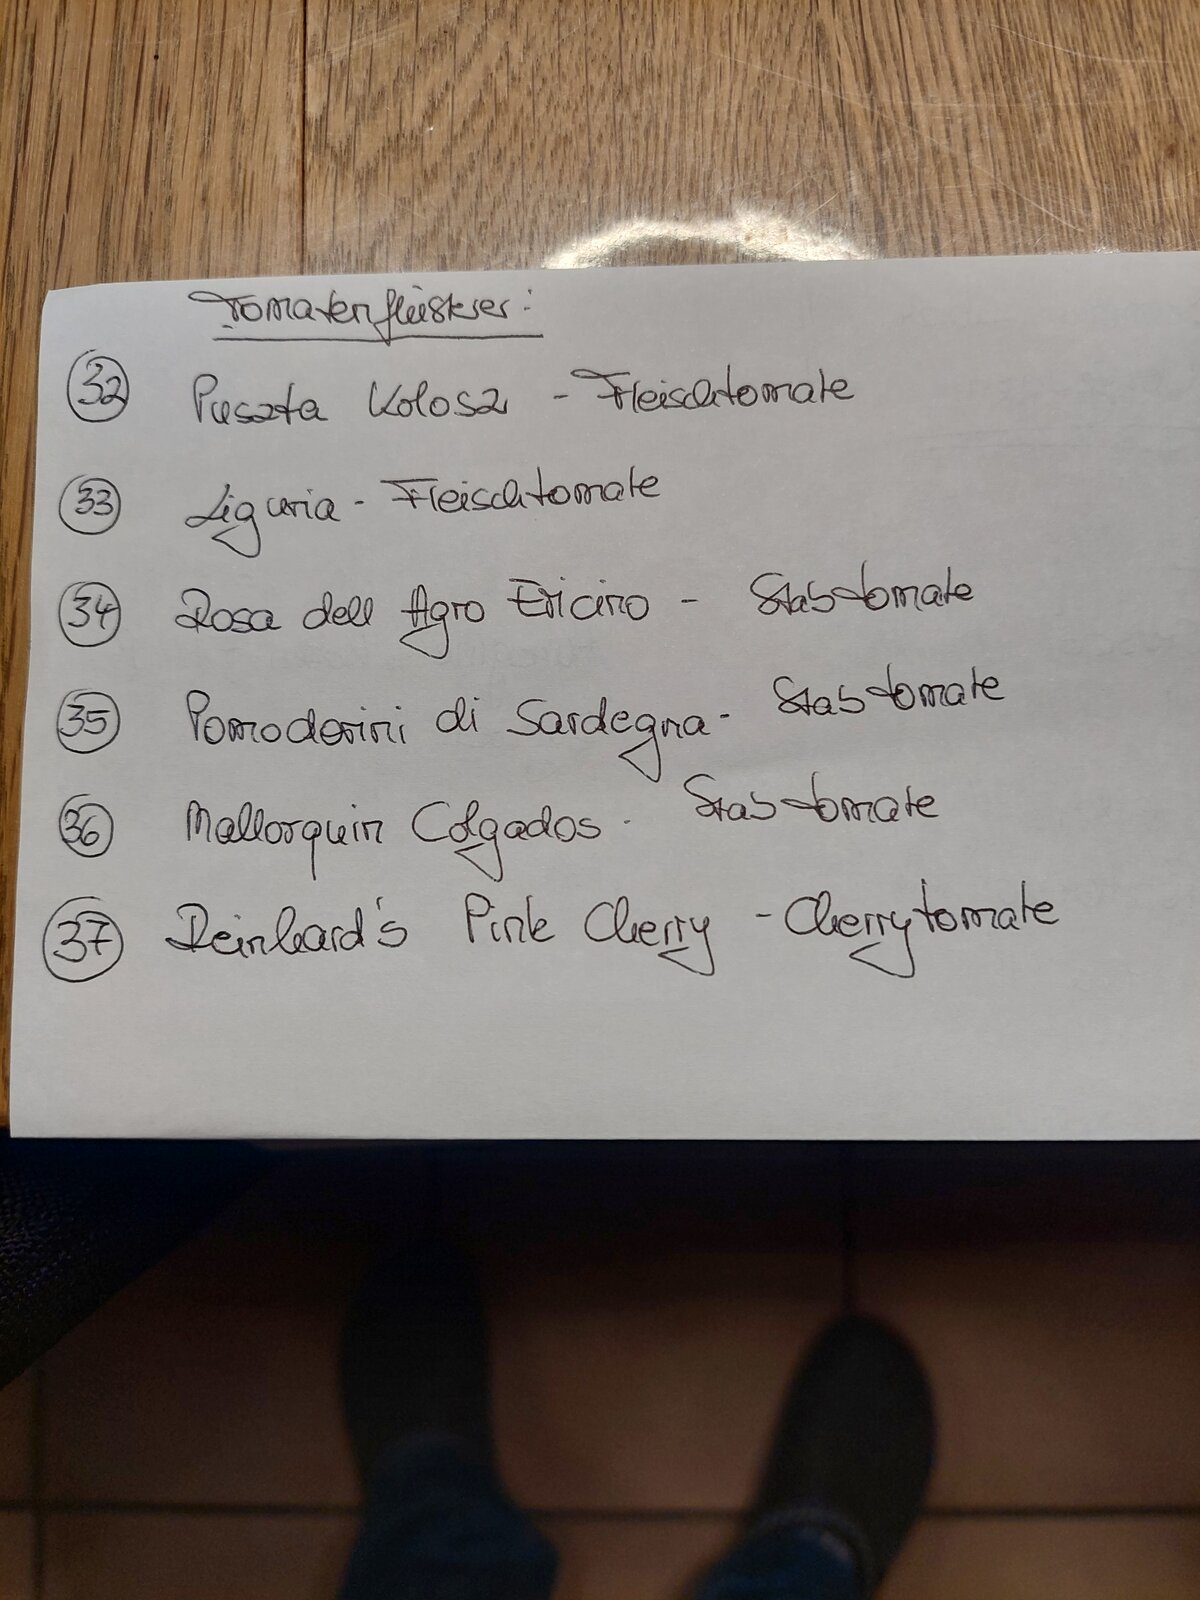 Tomatenflüsterer:
32 Puszta Kolosz - Fleischtomate
33 Liguria - Fleischtomate
34 Rosa dell Agro Ericino - Stabtomate
35 Pomodorini di Sardegna - Stabtomate
36 Mallorquin Colgados - Stabtomate
37 Reinhard's Pink Cherry - Cherrytomate